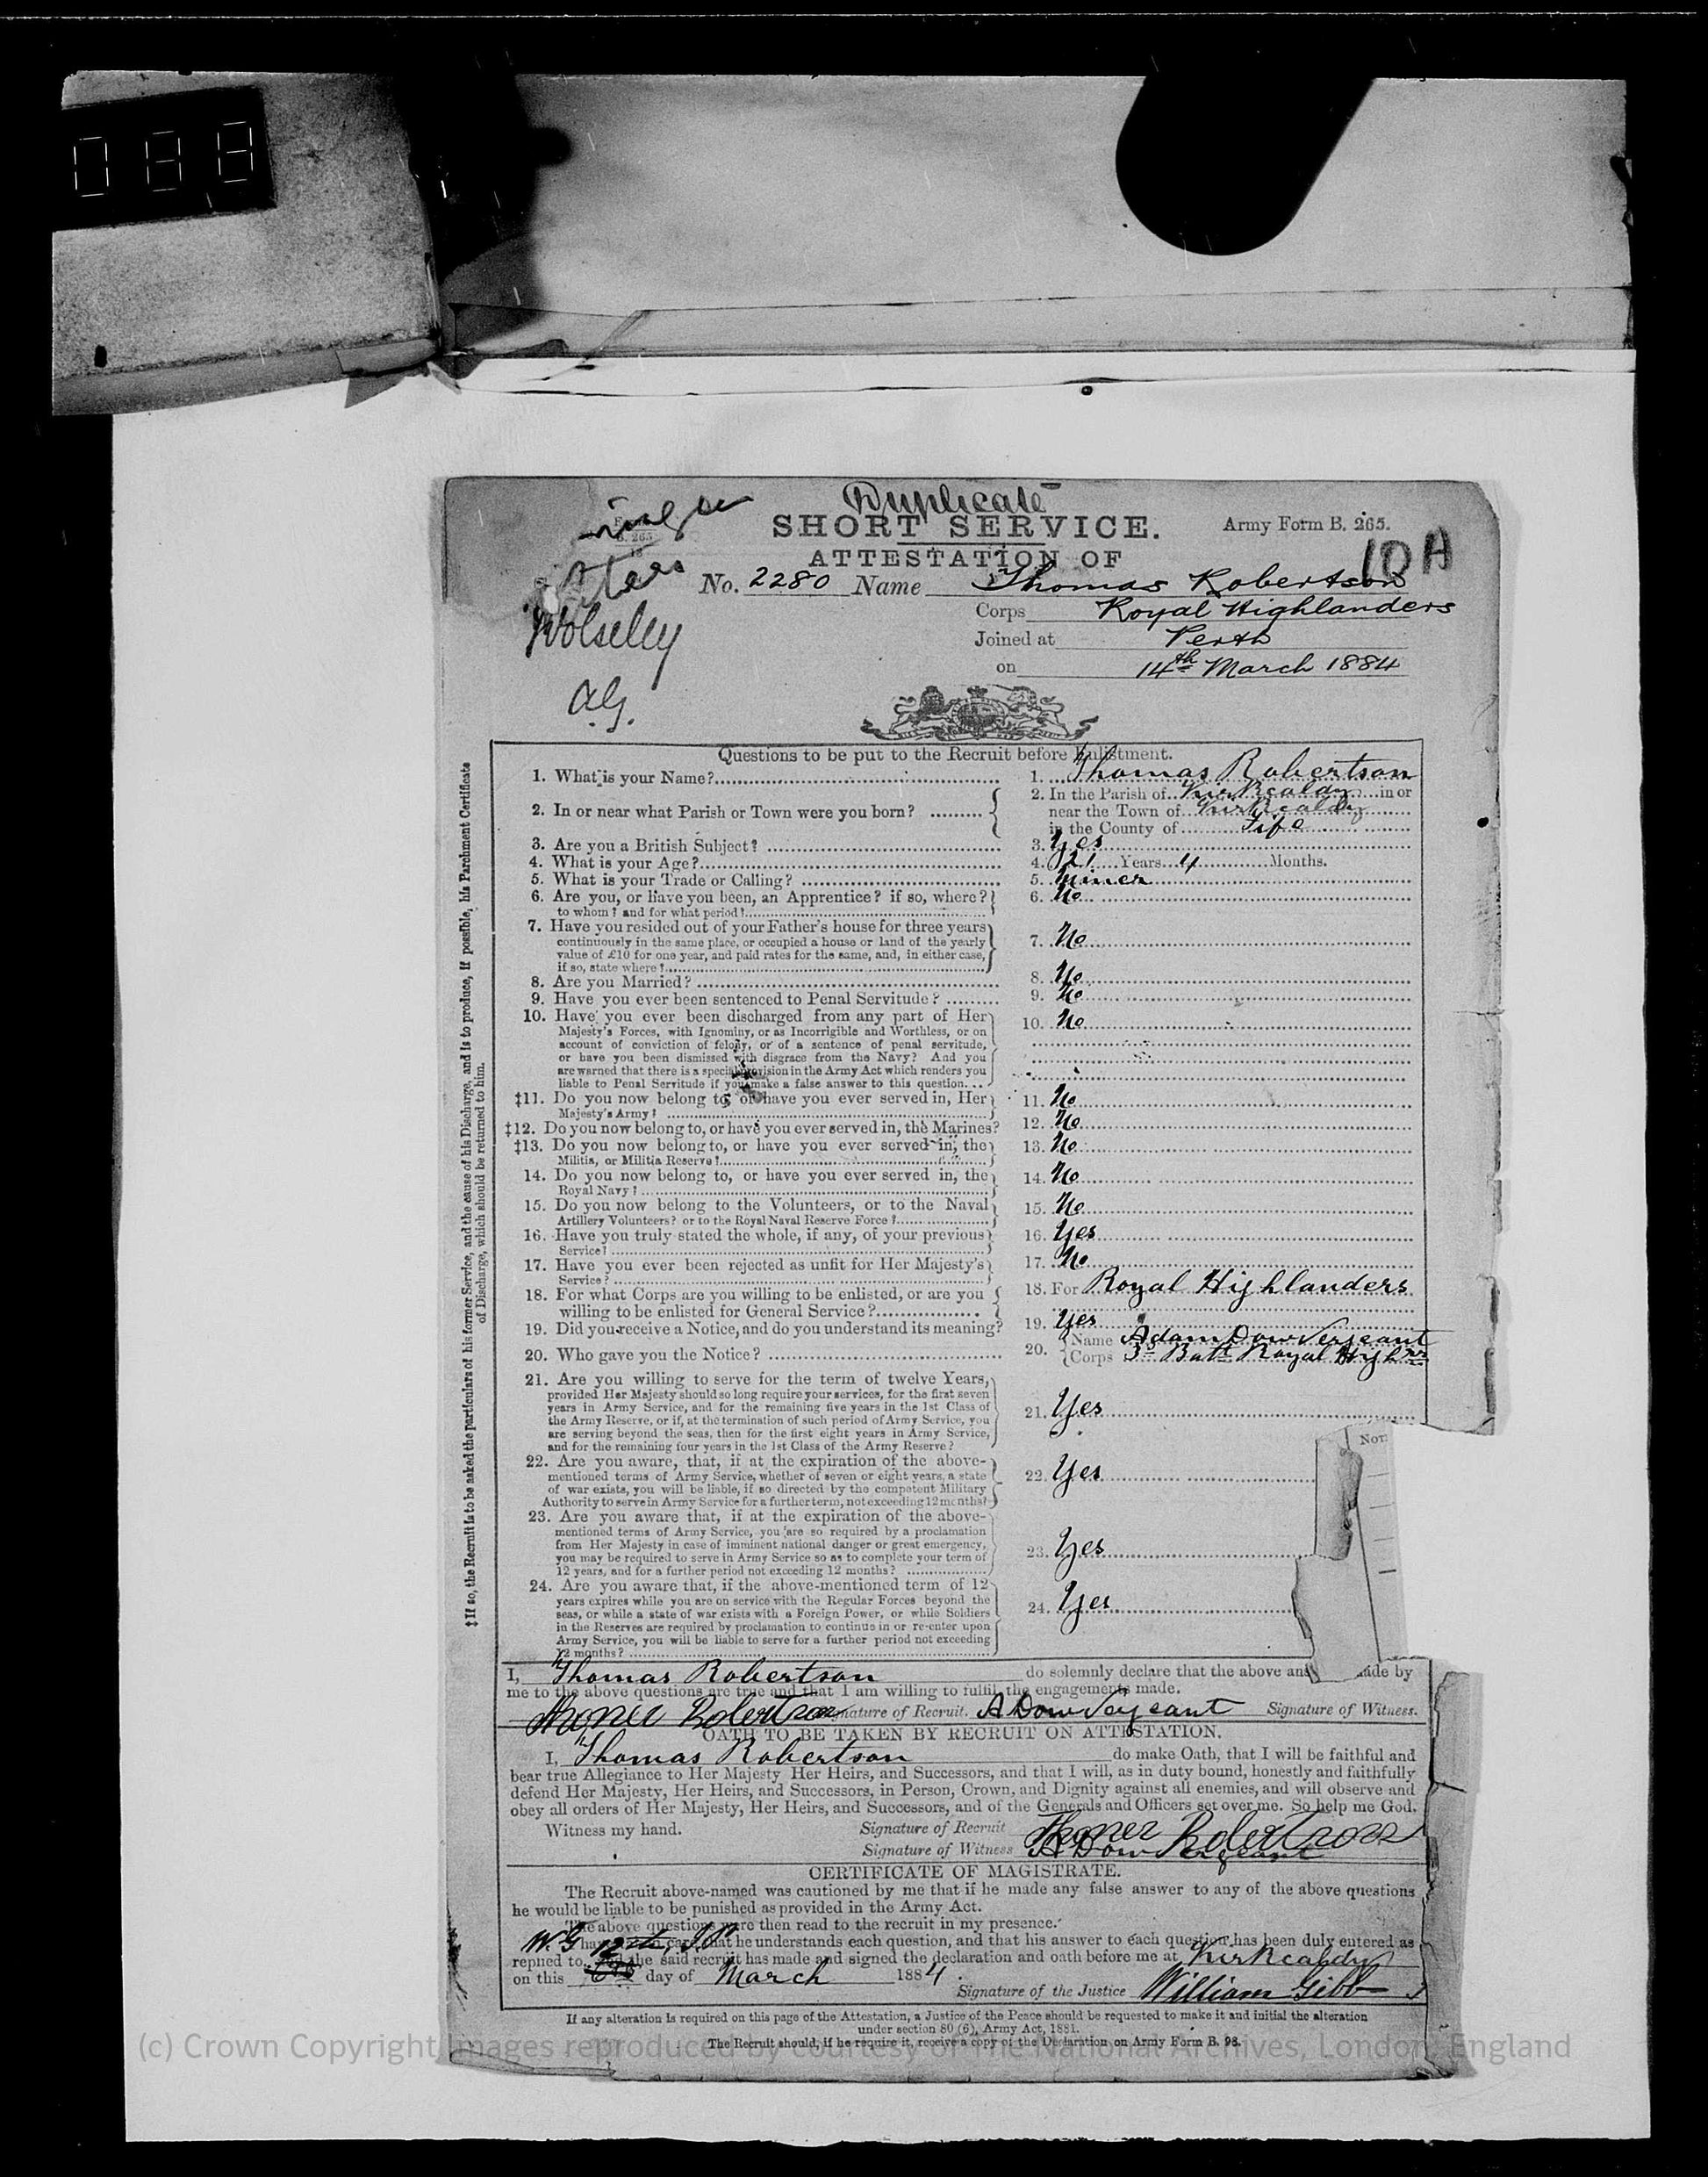 088
Duplicate
SHORT SERVICE.
Army Form B. 265.
10A
ATTESTATION OF
No. 2280 Name Thomas Robertson
Corps Royal Highlanders
Wolseley
Joined at Perth
on 14th March 1884
A.G.
Questions to be put to the Recruit before Enlistment.
1. What is your Name? 1. Thomas Robertson
2. In or near what Parish or Town were you born? 2. In the Parish of Kirkcaldy in or
near the Town of Kirkcaldy
in the County of Fife
3. Are you a British Subject? 3. Yes
4. What is your Age? 4. 21 Years 4 Months.
5. What is your Trade or Calling? 5. Miner
6. Are you, or have you been, an Apprentice? if so, where? 6. No
to whom? and for what period?
7. Have you resided out of your Father's house for three years
continuously in the same place, or occupied a house or land of the yearly 7. No
value of £10 for one year, and paid rates for the same, and, in either case,
if so, state where?
8. Are you Married? 8. No
9. Have you ever been sentenced to Penal Servitude? 9. No
10. Have you ever been discharged from any part of Her 10. No
Majesty's Forces, with Ignominy, or as Incorrigible and Worthless, or on
account of conviction of felony, or of a sentence of penal servitude,
or have you been dismissed with disgrace from the Navy? And you
are warned that there is a special provision in the Army Act which renders you
liable to Penal Servitude if you make a false answer to this question.
‡11. Do you now belong to, or have you ever served in, Her 11. No
Majesty's Army?
‡12. Do you now belong to, or have you ever served in, the Marines? 12. No
‡13. Do you now belong to, or have you ever served in, the 13. No
Militia, or Militia Reserve?
14. Do you now belong to, or have you ever served in, the 14. No
Royal Navy?
15. Do you now belong to the Volunteers, or to the Naval 15. No
Artillery Volunteers? or to the Royal Naval Reserve Force?
16. Have you truly stated the whole, if any, of your previous 16. Yes
Service?
17. Have you ever been rejected as unfit for Her Majesty's 17. No
Service?
18. For what Corps are you willing to be enlisted, or are you 18. For Royal Highlanders
willing to be enlisted for General Service?
19. Did you receive a Notice, and do you understand its meaning? 19. Yes
20. Who gave you the Notice? 20. Name Adam Dow Sergeant
Corps 3d Batt Royal Highrs
21. Are you willing to serve for the term of twelve Years,
provided Her Majesty should so long require your services, for the first seven
years in Army Service, and for the remaining five years in the 1st Class of 21. Yes
the Army Reserve, or if, at the termination of such period of Army Service, you
are serving beyond the seas, then for the first eight years in Army Service,
and for the remaining four years in the 1st Class of the Army Reserve?
Not
22. Are you aware, that, if at the expiration of the above-
mentioned terms of Army Service, whether of seven or eight years, a state 22. Yes
of war exists, you will be liable, if so directed by the competent Military
Authority to serve in Army Service for a further term, not exceeding 12 months?
23. Are you aware that, if at the expiration of the above-
mentioned terms of Army Service, you are so required by a proclamation
from Her Majesty in case of imminent national danger or great emergency, 23. Yes
you may be required to serve in Army Service so as to complete your term of
12 years, and for a further period not exceeding 12 months?
24. Are you aware that, if the above-mentioned term of 12
years expires while you are on service with the Regular Forces beyond the
seas, or while a state of war exists with a Foreign Power, or while Soldiers 24. Yes
in the Reserves are required by proclamation to continue in or re-enter upon
Army Service, you will be liable to serve for a further period not exceeding
12 months?
‡ If so, the Recruit is to be asked the particulars of his former Service, and the cause of his Discharge, and is to produce, if possible, his Parchment Certificate
of Discharge, which should be returned to him.
I, Thomas Robertson do solemnly declare that the above ans made by
me to the above questions are true and that I am willing to fulfil the engagements made.
Thomas Robertson Signature of Recruit. A Dow Sergeant Signature of Witness.
OATH TO BE TAKEN BY RECRUIT ON ATTESTATION.
I, Thomas Robertson do make Oath, that I will be faithful and
bear true Allegiance to Her Majesty Her Heirs, and Successors, and that I will, as in duty bound, honestly and faithfully
defend Her Majesty, Her Heirs, and Successors, in Person, Crown, and Dignity against all enemies, and will observe and
obey all orders of Her Majesty, Her Heirs, and Successors, and of the Generals and Officers set over me. So help me God.
Witness my hand. Signature of Recruit Thomas Robertson
Signature of Witness A Dow Sergeant
CERTIFICATE OF MAGISTRATE.
The Recruit above-named was cautioned by me that if he made any false answer to any of the above questions
he would be liable to be punished as provided in the Army Act.
The above questions were then read to the recruit in my presence.
W. G 12th J.P. care that he understands each question, and that his answer to each question has been duly entered as
replied to, and the said recruit has made and signed the declaration and oath before me at Kirkcaldy
on this day of March 1884.
Signature of the Justice William Gibb
If any alteration is required on this page of the Attestation, a Justice of the Peace should be requested to make it and initial the alteration
under section 80 (6), Army Act, 1881.
The Recruit should, if he require it, receive a copy of the Declaration on Army Form B. 98.
(c) Crown Copyright Images reproduced by courtesy of The National Archives, London, England